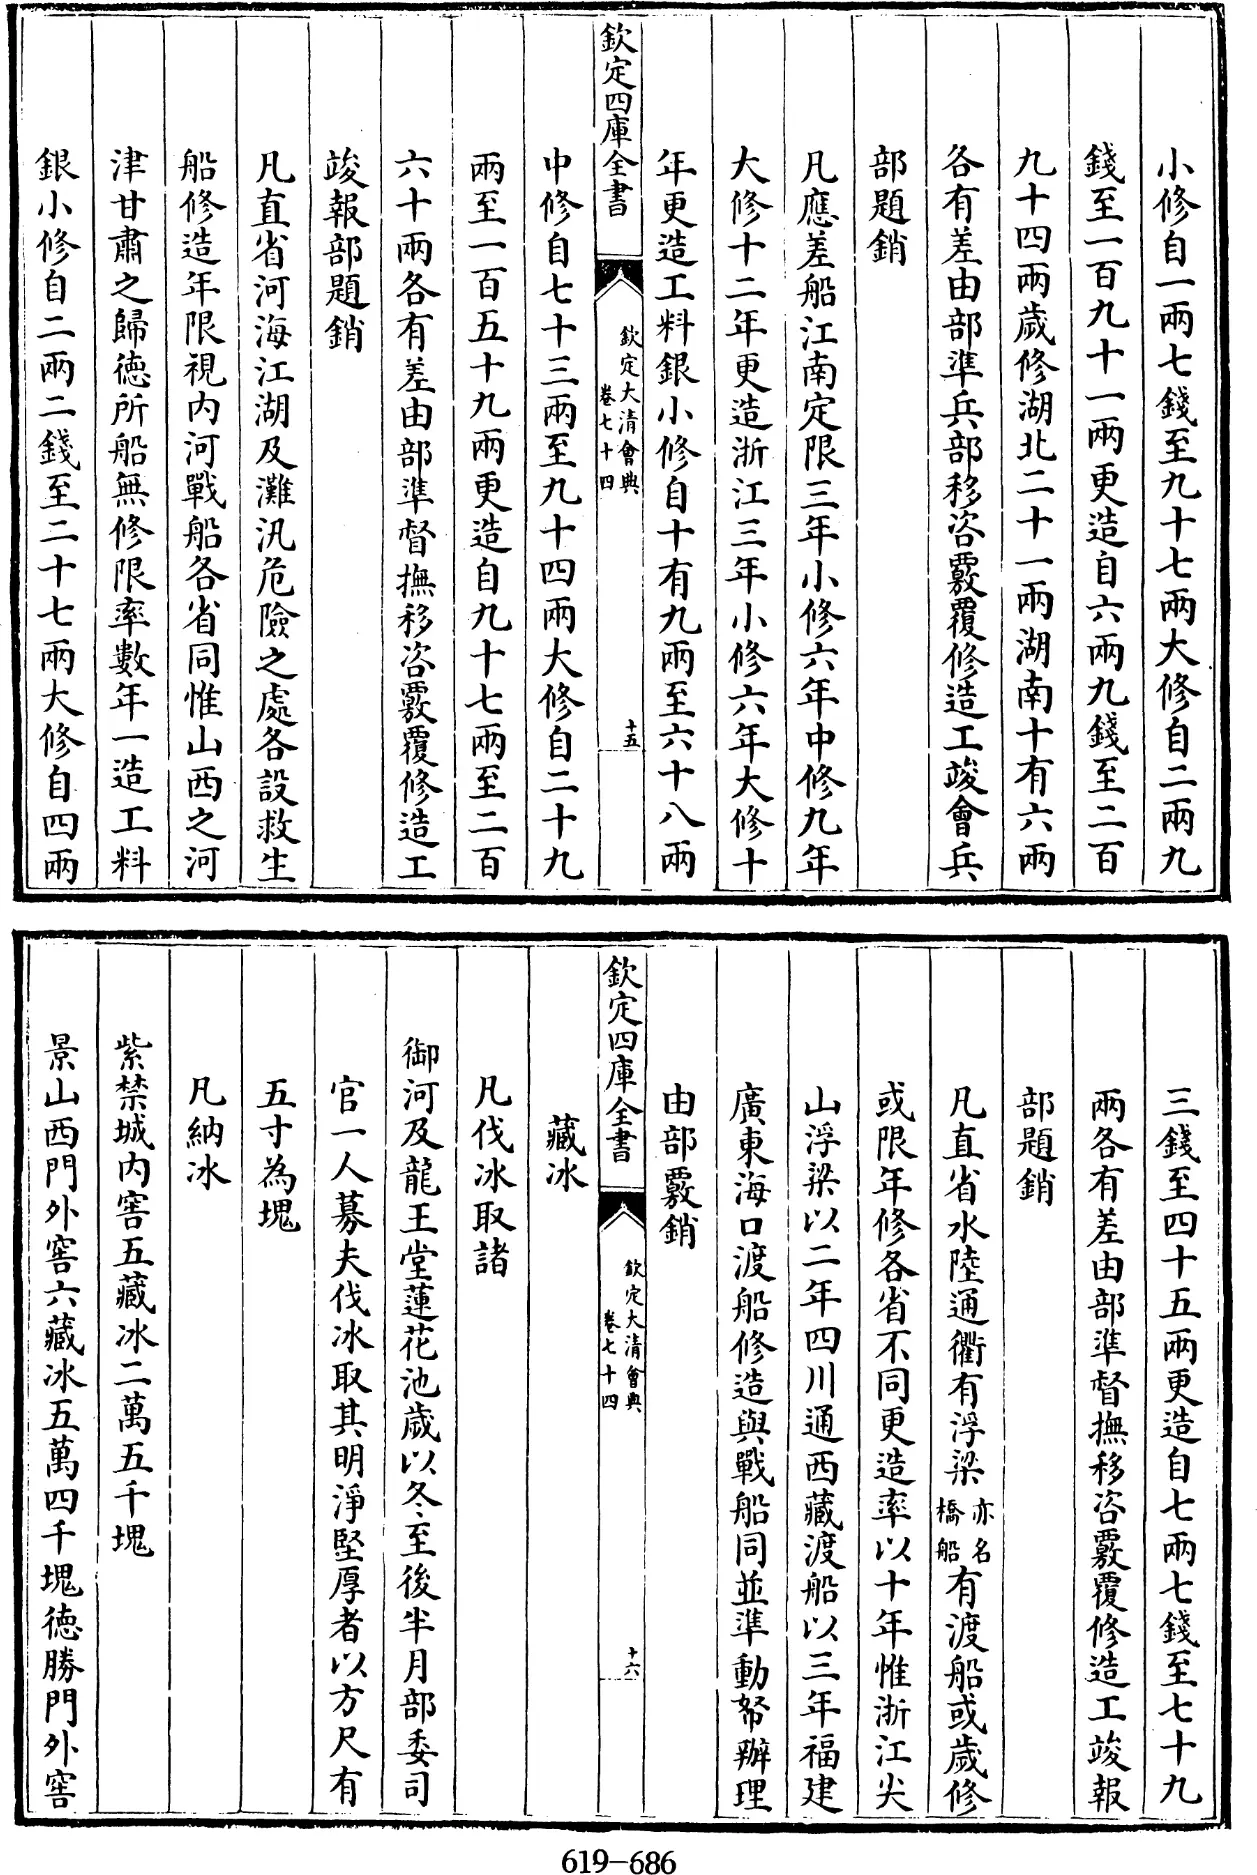 小修自一兩七錢至九十七兩大修自二兩九
錢至一百九十一兩更造自六兩九錢至二百
九十四兩歲修湖北二十一兩湖南十有六兩
各有差由部準兵部移咨覈覆修造工竣會兵
部題銷
凡應差船江南定限三年小修六年中修九年
大修十二年更造浙江三年小修六年大修十
年更造工料銀小修自十有九兩至六十八兩
欽定四庫全書
欽定大清會典
卷七十四
十五
中修自七十三兩至九十四兩大修自二十九
兩至一百五十九兩更造自九十七兩至二百
六十兩各有差由部準督撫移咨覈覆修造工
竣報部題銷
凡直省河海江湖及灘汛危險之處各設救生
船修造年限視内河戰船各省同惟山西之河
津甘肅之歸徳所船無修限率數年一造工料
銀小修自二兩二錢至二十七兩大修自四兩
三錢至四十五兩更造自七兩七錢至七十九
兩各有差由部準督撫移咨覈覆修造工竣報
部題銷
凡直省水陸通衢有浮梁亦名橋船有渡船或歲修
或限年修各省不同更造率以十年惟浙江尖
山浮梁以二年四川通西藏渡船以三年福建
廣東海口渡船修造與戰船同並準動帑辦理
由部覈銷
欽定四庫全書
欽定大清會典
卷七十四
十六
藏冰
凡伐冰取諸
御河及龍王堂蓮花池歲以冬至後半月部委司
官一人募夫伐冰取其明淨堅厚者以方尺有
五寸為塊
凡納冰
紫禁城内窖五藏冰二萬五千塊
景山西門外窖六藏冰五萬四千塊徳勝門外窖
619-686